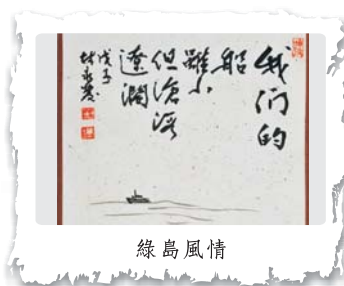 我们的
船
雖小
但滄溟
遼濶
戊子
綠島風情